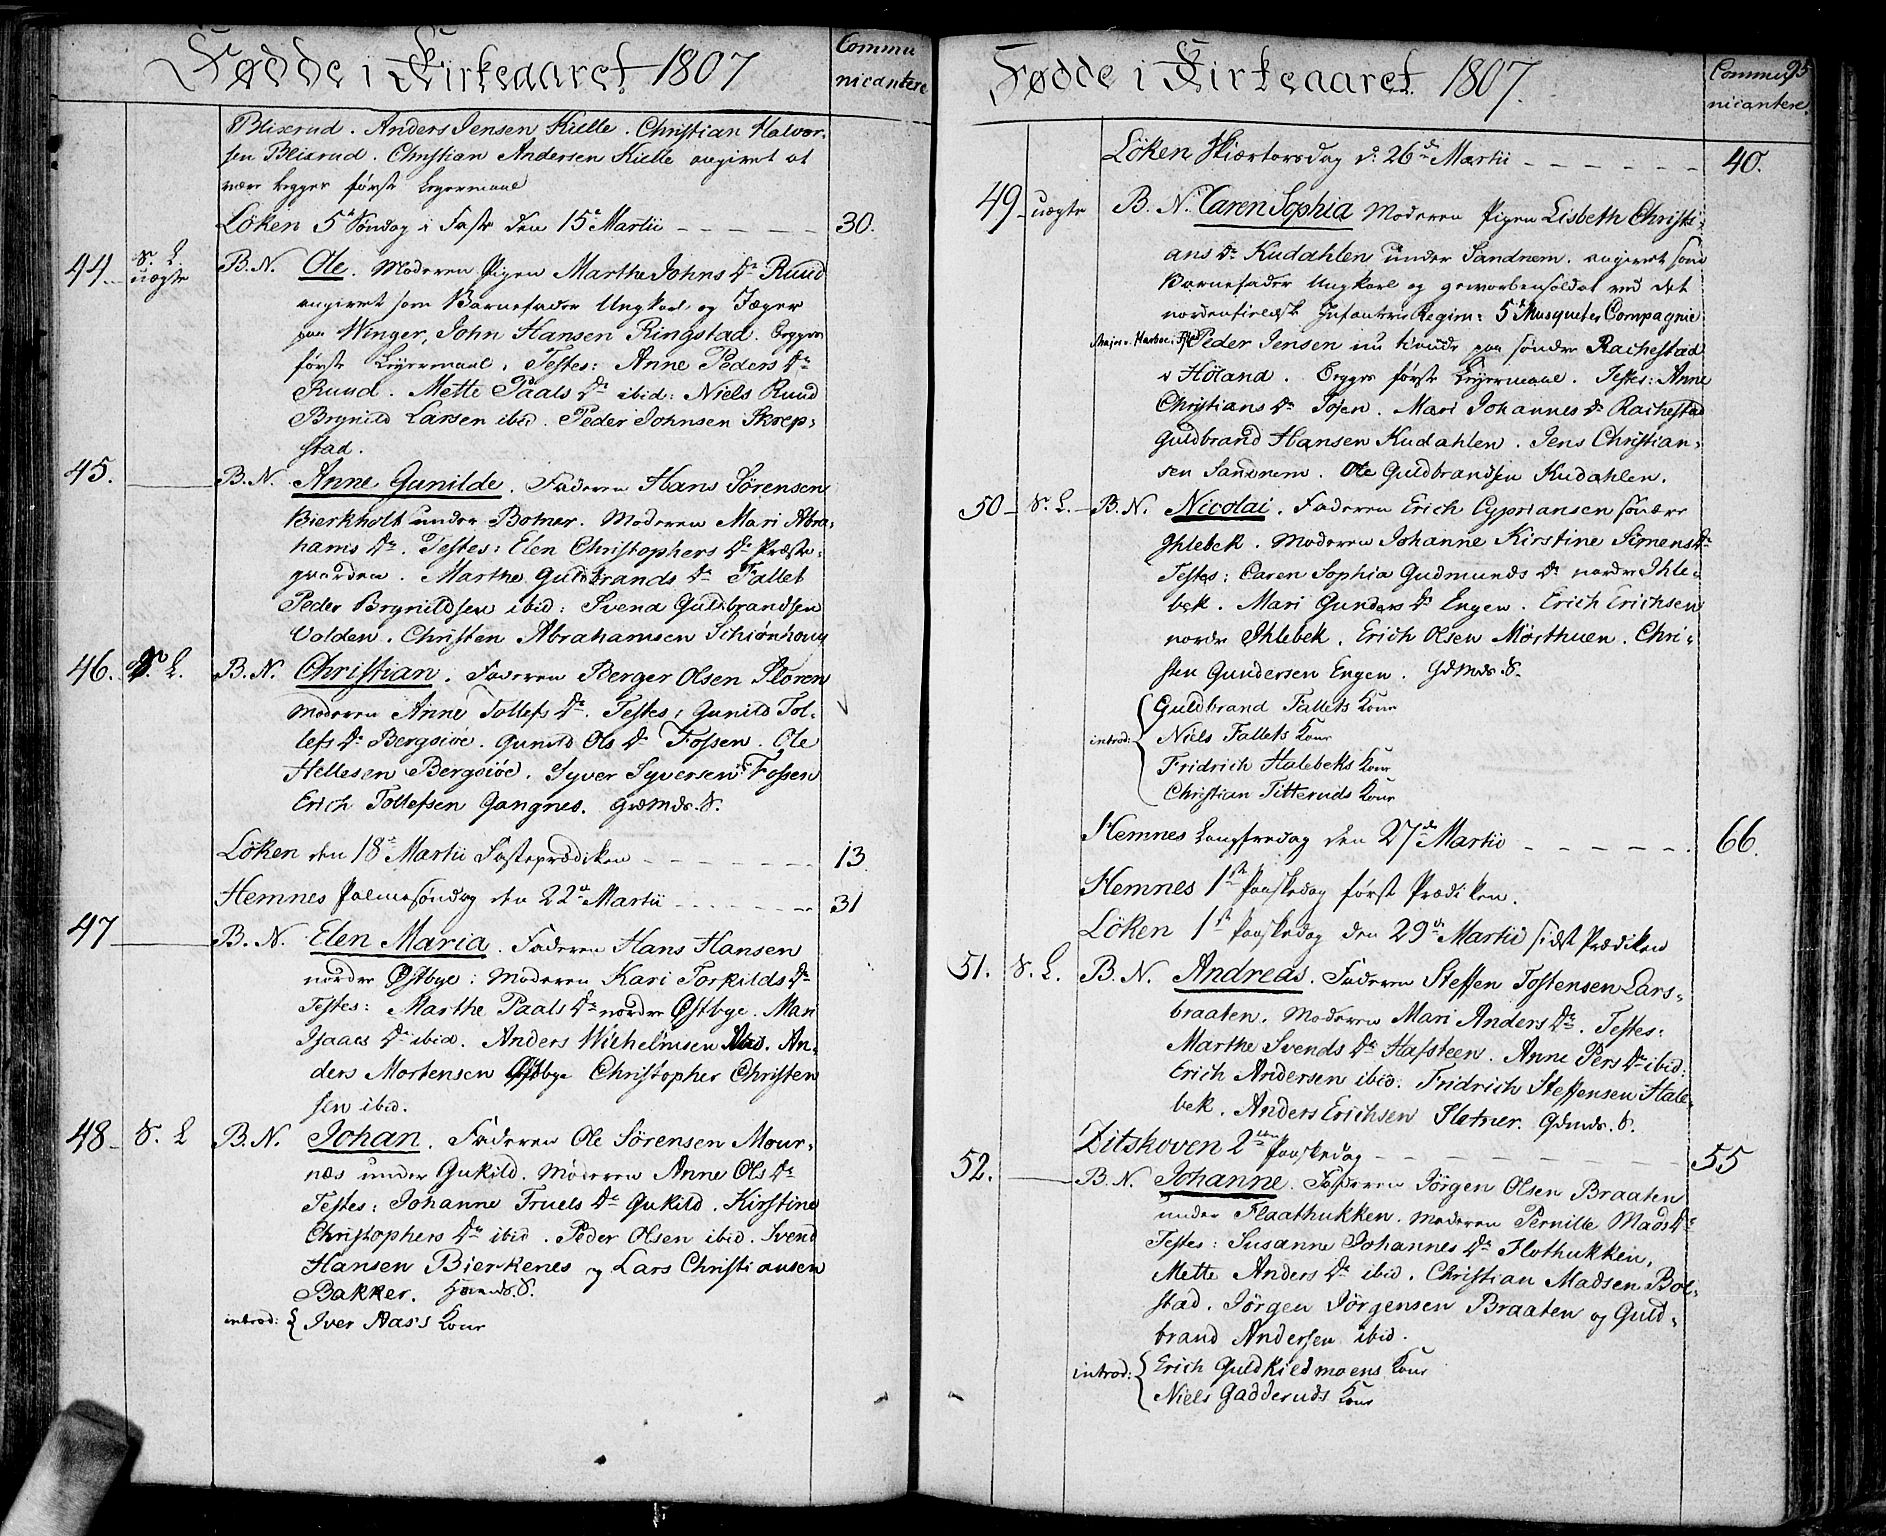 Fødde i Kirkeaaret 1807
Commu
nicantere
Blixrud. Anders Jensen Kielle. Christian Halvor-
sen Blixrud. Christian Andersen Kielle angivet at
være begges første Leyermaal
Löken 5te Søndag i Faste den 15de Martii - - - - - 30.
44. S. L. uægte B.N. Ole. Moderen Pigen Marthe Johns Dr Ruud
angivet som Barnefader Ungkarl og Jæger
paa Winger, John Hansen Ringstad. Begges
første Leyermaal. Testes: Anne Peders Dr
Ruud. Mette Paals Dr ibid: Niels Ruud
Brynild Larsen ibid. Peder Johnsen Skrep-
stad.
45. B.N. Anne Gunilde. Faderen Hans Sørensen
Bierkholt under Botner. Moderen Mari Abra-
hams Dr. Testes: Elen Christophers Dr Præste-
gaarden. Marthe Guldbrands Dr Fallet
Peder Brynildsen ibid: Svend Guldbrandsen
Valden. Christen Abrahamsen Schiønhoug
46. S. L. B.N. Christian. Faderen Berger Olsen Floren
Moderen Anne Tollefs Dr. Testes: Gunild Tol-
lefs Dr Bergsiøe. Gunild Ols Dr Fossen. Ole
Hellesen Bergsiøe. Syver Syversen Fossen
Erich Tollefsen Gangnes. Gdmds. S.
Löken den 18de Martii Fasteprædiken - - - - - 13
Hemnes Palmesøndag den 22de Martii - - - - - 31
47 B.N. Elen Maria. Faderen Hans Hansen
nordre Østbye: Moderen Kari Torkilds Dr
Testes: Marthe Paals Dr nordre Østbye. Mari
Isaacs Dr ibid. Anders Wilhelmsen ibid. An-
ders Mortensen Østbye Christopher Christen
sen ibid.
48. S. L B.N. Johan. Faderen Ole Sørensen Mour-
næs under Gukild. Moderen Anne Ols Dr
Testes: Johanne Truels Dr Gukild. Kirstine
Christophers Dr ibid. Peder Olsen ibid. Svend
Hansen Bierkenes og Lars Christiansen
Bakker. S.
introd: { Iver Aas's Kone
Fødde i Kirkeaaret 1807.
Commu
nicantere
95
Löken Skiærtorsdag d. 26de Martii - - - - - 40.
49 uægte B.N. Caren Sophia Moderen Pigen Lisbeth Christi-
ans Dr Kudahlen under Sandnem. angivet som
Barnefader Ungkarl og geworbensoldat ved det
nordenfieldsk Infanterie Regim: 5te Musqueteer Compagnie
Peder Jensen nu havde paa søndre Rachestad
i Høland. Begges første Leyermaal. Testes: Anne
Christians Dr Mari Johannes Dr Rachestad
Guldbrand Hansen Kudahlen. Jens Christian-
sen Sandnem. Ole Guldbrandsen Kudahlen.
50 S. L. B.N. Nicolai. Faderen Erich Cypriansen søndre
Ihlebek. Moderen Johanne Kirstine Simens Dr
Testes: Caren Sophia Gudmunds Dr nordre Ihle-
bek. Mari Gunders Dr Engen. Erich Erichsen
nordr Ihlebek. Erich Olsen Mørthuen. Chri-
sten Gundersen Engen. Gdmds. S.
introd: { Guldbrand Fallets Kone
Niels Fallets Kone
Fridrich Halebeks Kone
Christian Titteruds Kone
Hemnes Langfredag den 27de Martii - - - - - 66.
Hemnes 1ste Paaskedag først Prædiken.
Löken 1ste Paaskedag den 29de Martii sidst Prædiken
51. S. L. B.N. Andreas. Faderen Steffen Tostensen Lars-
braaten. Moderen Mari Anders Dr. Testes:
Marthe Svends Dr Hafsteen. Anne Pers Dr ibid:
Erich Andersen ibid. Fridrich Steffensen Hale-
bek. Anders Erichsen Slotner. Gdmds. S.
Zitskoven 2den Paaskedag - - - - - 55
52. B.N. Johanne. Faderen Jörgen Olsen Braaten
under Flaathukken. Moderen Pernille Mads Dr
Testes: Susanne Johannes Dr Flothukken,
Mette Anders Dr ibid. Christian Madsen Bol-
stad. Jörgen Jörgensen Braaten og Guld-
brand Andersen ibid.
introd: { Erich Guldkildmoens Kone
Niels Gadderuds Kone